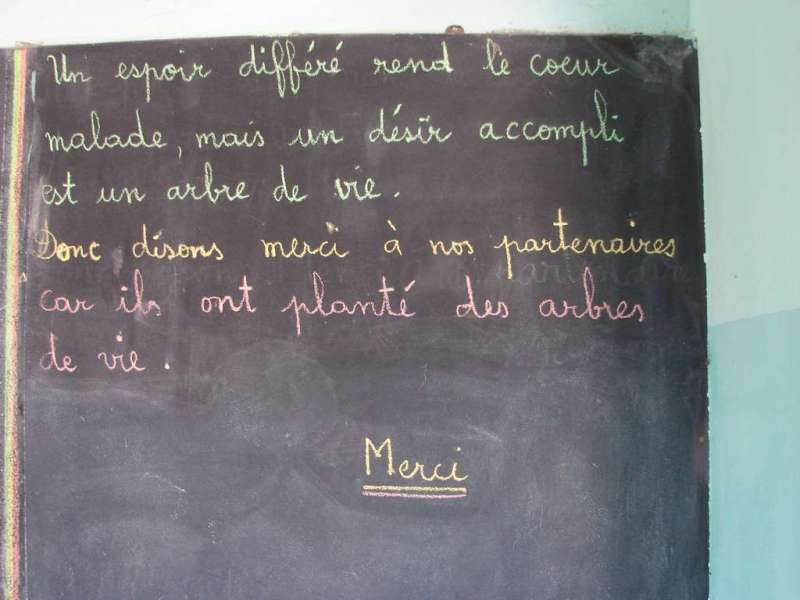 Un espoir différé rend le coeur
malade, mais un désir accompli
est un arbre de vie.
Donc disons merci à nos partenaires
car ils ont planté des arbres
de vie.
Merci